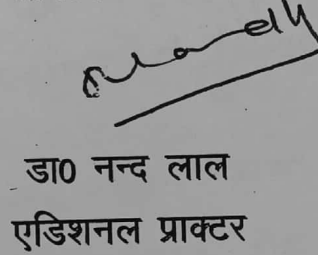 डा0 नन्द लाल
एडिशनल प्राक्टर